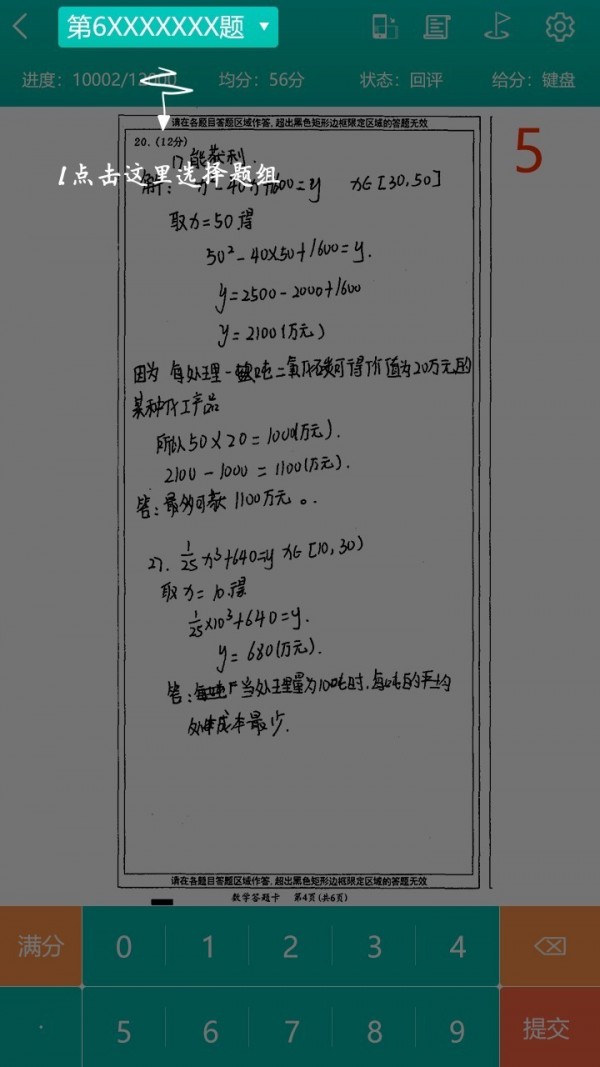 第6XXXXXXX题
进度：10002/12000
均分：56分
状态：回评
给分：键盘
请在各题目答题区域作答，超出黑色矩形边框限定区域的答题无效
20.（12分）
1点击这里选择题组
5
1).能获利.
解： x²-40x+1600=y x∈[30,50]
取x=50.得
50²-40×50+1600=y.
y=2500-2000+1600
y=2100(万元)
因为 每处理一吨二氧化碳可得价值为20万元的
某种化工产品
所以50×20=1000(万元).
2100-1000=1100(万元).
答：最多可获1100万元。
2). 1/25 x³+640=y x∈[10,30)
取x=10.得
1/25×10³+640=y.
y=680(万元).
答：当处理量为100吨时.每吨的平均
处理成本最少.
请在各题目答题区域作答，超出黑色矩形边框限定区域的答题无效
数学答题卡 第4页(共6页)
满分 0 1 2 3 4
. 5 6 7 8 9 提交